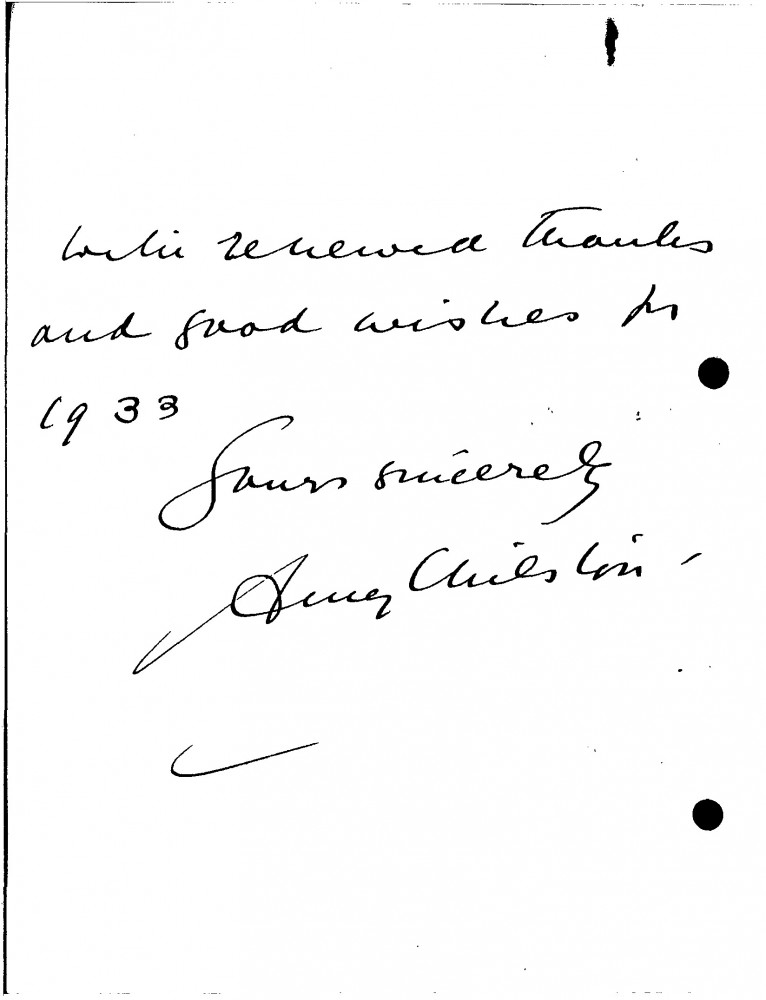 With renewed thanks
and good wishes for
1933
Yours sincerely
Amy Chilston